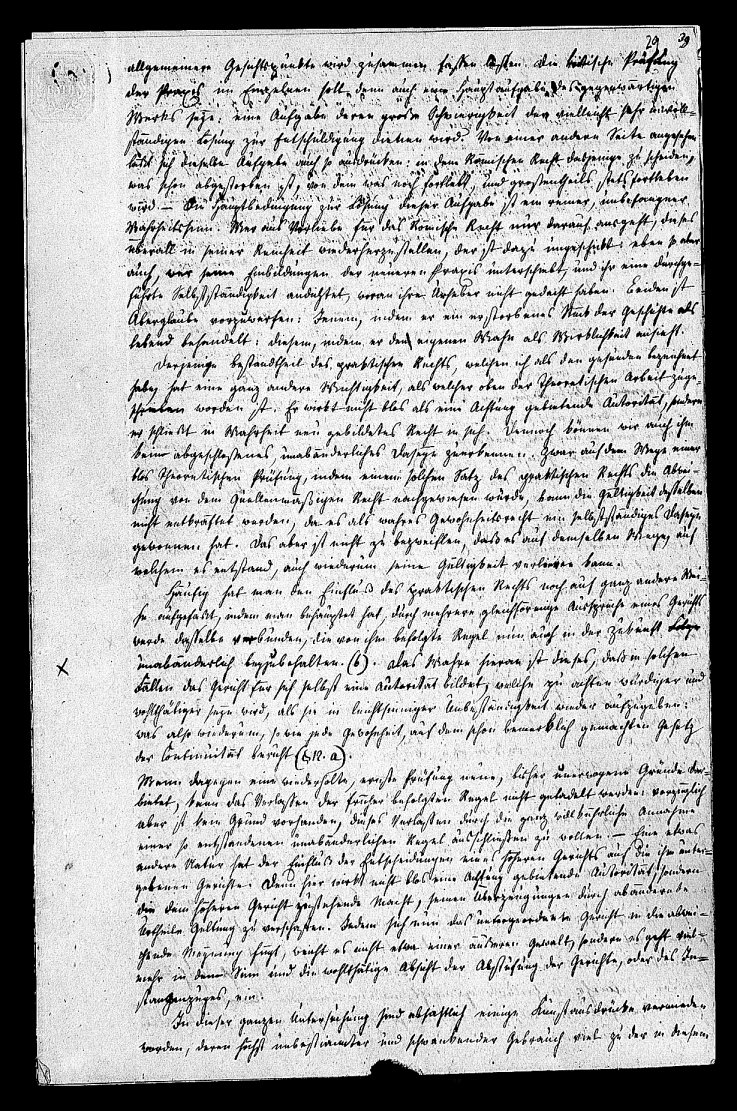 29 39
allgemeinere Gesichtspunkte wird zusammen fassen lassen. Die kritische Prüfung
der Praxis im Einzelnen soll denn auch eine Hauptaufgabe des gegenwärtigen
Werks seyn: eine Aufgabe deren große Schwierigkeit der vielleicht sehr unvoll-
ständigen Lösung zur Entschuldigung dienen wird. Von einer andern Seite angesehen
läßt sich dieselbe Aufgabe auch so ausdrücken: in dem Römischen Recht dasjenige zu scheiden,
was schon abgestorben ist, von dem was noch fortlebt, und großentheils stets fortleben
wird. – Die Hauptbedingung zur Lösung dieser Aufgabe ist ein reiner, unbefangener,
Wahrheitssinn. Wer aus Vorliebe für das Römische Recht nur darauf ausgeht, dieses
überall in seiner Reinheit wiederherzustellen, der ist dazu ungeschickt: eben so aber
auch, wer seine Einbildungen der neueren Praxis unterschiebt, und ihr eine durchge-
führte Selbstständigkeit andichtet, woran ihre Urheber nicht gedacht haben. Beiden ist
Aberglaube vorzuwerfen: Jenem, indem er ein erstorbenes Stück der Geschichte als
lebend behandelt: diesem, indem er den eigenen Wahn als Wirklichkeit ansieht.
Derjenige Bestandtheil des praktischen Rechts, welchen ich als den gesunden bezeichnet
habe, hat eine ganz andere Wichtigkeit, als welche oben der theoretischen Arbeit zuge-
schrieben worden ist. Er wirkt nicht blos als eine Achtung gebietende Autorität, sondern
er schließt in Wahrheit neu gebildetes Recht in sich. Dennoch können wir auch ihm
kein abgeschlossenes, unabänderliches Daseyn zuerkennen. Zwar auf dem Wege einer
blos theoretischen Prüfung, indem einem solchen Satz des praktischen Rechts die Abwei-
chung von dem Quellenmäßigen Recht nachgewiesen würde, kann die Gültigkeit desselben
nicht entkräftet werden, da es als wahres Gewohnheitsrecht ein selbstständiges Daseyn
gewonnen hat. Das aber ist nicht zu bezweifeln, daß es auf demselben Wege, auf
welchem es entstand, auch wiederum seine Gültigkeit verlieren kann.
Häufig hat man den Einfluß des praktischen Rechts noch auf ganz andere Wei-
se aufgefaßt, indem man behauptet hat, durch mehrere gleichförmige Aussprüche eines Gerichts
werde dasselbe verbunden, die von ihm befolgte Regel nun auch in der Zukunft
unabänderlich beyzubehalten (b). Das Wahre hieran ist dieses, daß in solchen
Fällen das Gericht für sich selbst eine Autorität bildet, welche zu achten würdiger und
wohlthätiger seyn wird, als sie in leichtsinniger Unbeständigkeit wieder aufzugeben:
was also wiederum, so wie jede Gewohnheit, auf dem schon bemerklich gemachten Gesetz
der Continuität beruht (§ 12. a).
Wenn dagegen eine wiederholte, ernste Prüfung neue, bisher unerwogene Gründe dar-
bietet, kann das Verlassen der früher befolgten Regel nicht getadelt werden: vorzüglich
aber ist kein Grund vorhanden, dieses Verlassen durch die ganz willkührliche Annahme
einer so entstandenen unabänderlichen Regel ausschließen zu wollen. – Eine etwas
andere Natur hat der Einfluß der Entscheidungen eines höheren Gerichts auf die ihm unter-
gebenen Gerichte. Denn hier wirkt nicht blos eine Achtung gebietende Autorität, sondern
die dem höheren Gericht zustehende Macht, seinen Überzeugungen durch abändernde
Urtheile Geltung zu verschaffen. Indem sich nun das untergeordnete Gericht in die abwei-
chende Meynung fügt, weicht es nicht etwa einer äußeren Gewalt, sondern es geht viel-
mehr in den Sinn und die wohlthätige Absicht der Abstufung der Gerichte, oder des In-
stanzenzuges, ein.
In dieser ganzen Untersuchung sind absichtlich einige Kunstausdrücke vermieden
worden, deren höchst unbestimmter und schwankender Gebrauch viel zu der in diesem